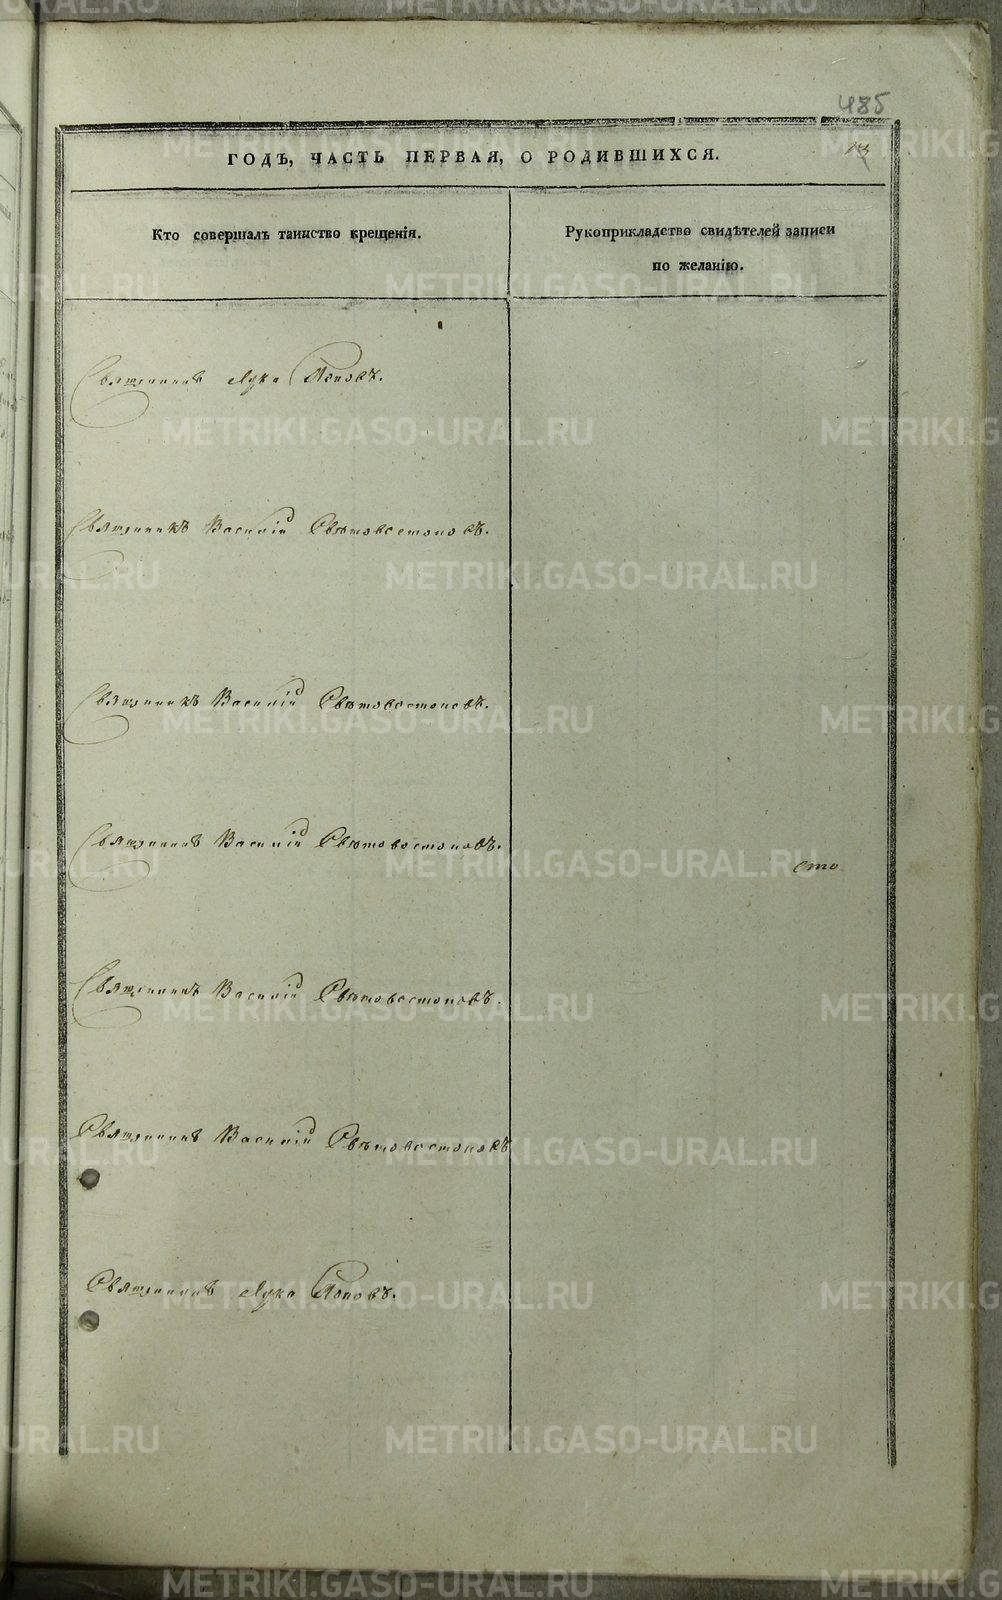 485
13
ГОДЪ, ЧАСТЬ ПЕРВАЯ, О РОДИВШИХСЯ.
Кто совершалъ таинство крещенія.
Рукоприкладство свидѣтелей записи
по желанію.
Священникъ Лука Поповъ.
Священникъ Василій Свѣтовостоковъ.
Священникъ Василій Свѣтовостоковъ.
Священникъ Василій Свѣтовостоковъ.
сто
Священникъ Василій Свѣтовостоковъ.
Священникъ Василій Свѣтовостоковъ
Священникъ Лука Поповъ.
METRIKI.GASO-URAL.RU